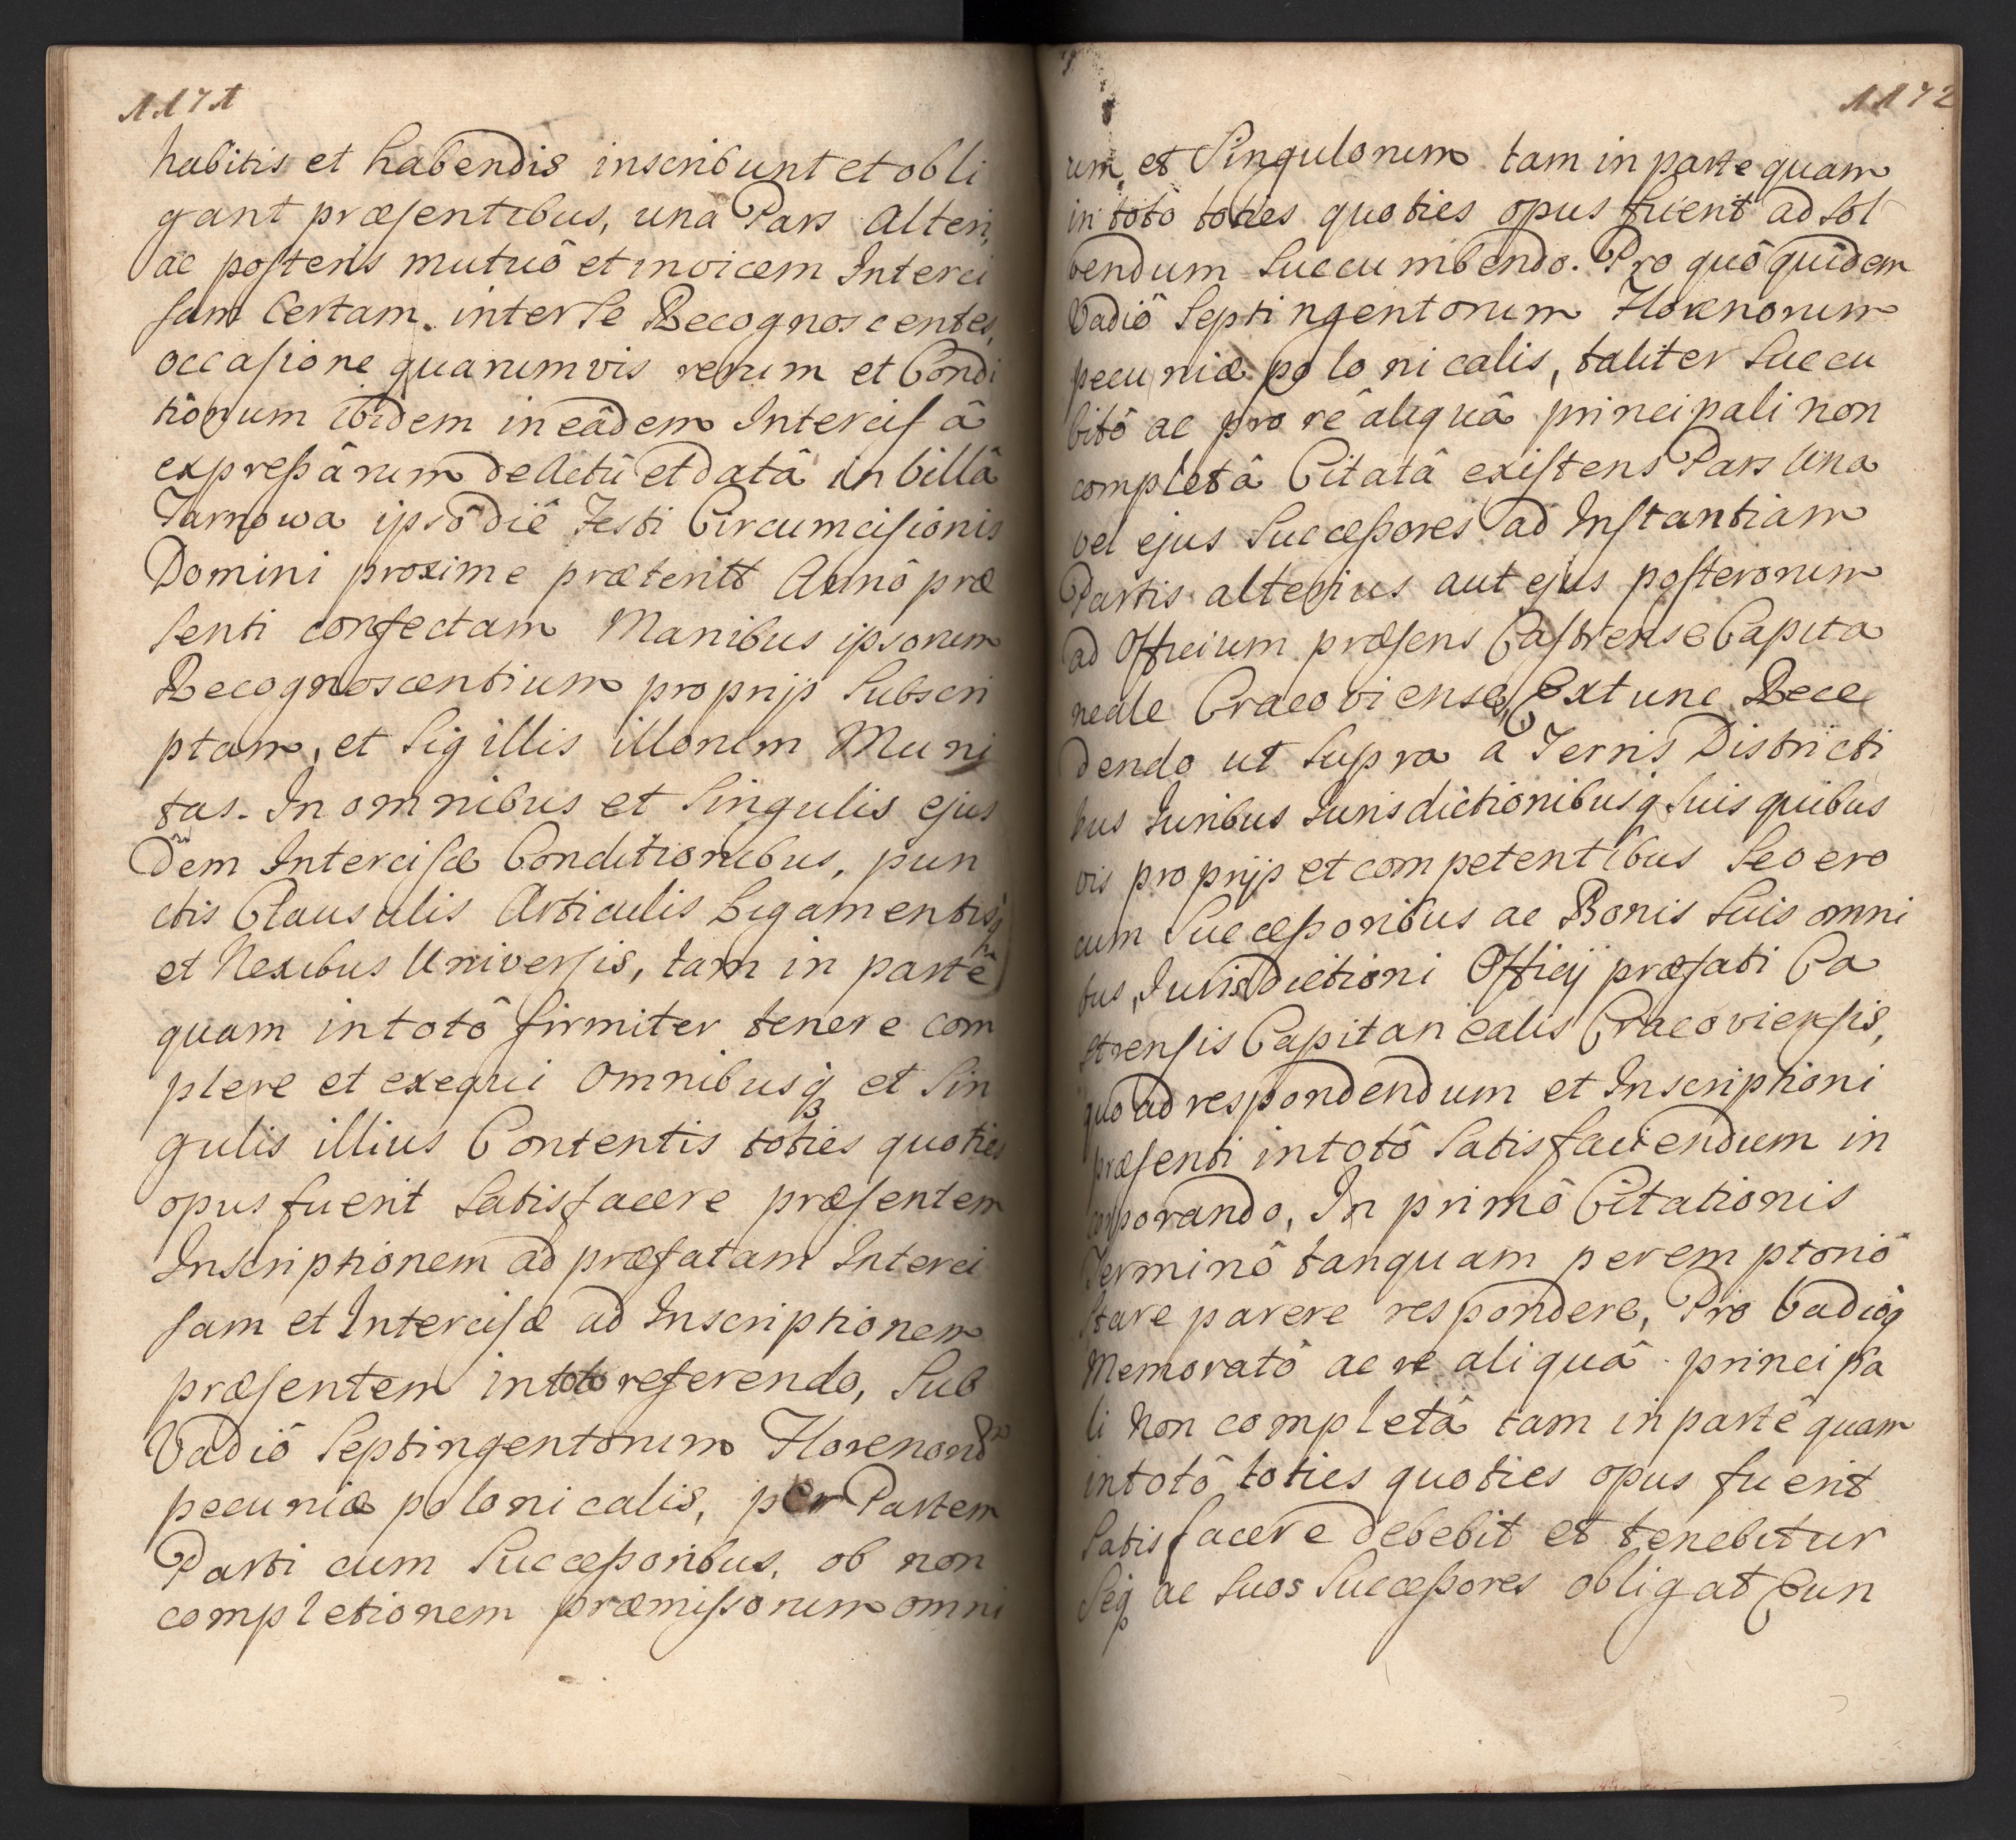 1171
habitis et habendis inscribunt et obli
gant præsentibus, una Pars Alteri,
ac posteris mutuô et invicem Interci
sam Certam inter Se Recognoscentes,
occasione quarumvis rerum et Condi
tionum ibidem in eâdem Intercisâ
expressârum de Actû et datâ in Villâ
Tarnowa ipsô diê Festi Circumcisionis
Domini proxime præteritt Annô præ
senti confectam Manibus ipsorum
Recognoscentium proprijs Subscri
ptam, et Sigillis illorum Muni
tas. In omnibus et Singulis ejus
dem Intercisæ Conditionibus, pun
ctis Clausulis Articulis Ligamentisq
et Nexibus Universis, tam in partê
quam in totô firmiter tenere com
plere et exequi Omnibusq3 et Sin
gulis illius Contentis toties quoties
opus fuerit Satisfacere præsentem
Inscriptionem ad præfatam Interci
sam et Intercisæ ad Inscriptionem
præsentem in toto referendo, Sub
Vadiô Septingentorum Florenor
pecuniæ polonicalis, per Partem
Parti cum Successoribus, ob non
completionem præmissorum omni
1172
um et Singulorum tam in parte quam
in totô toties quoties opus fuerit ad sol
vendum Succumbendo. Pro quô quidem
Vadiô Septingentorum Florenorum
pecuniæ polonicalis, taliter Succu
bitô ac pro rê aliquâ principali non
completâ Citatâ existens Pars Una
vel ejus Successores ad Instantiam
Partis alterius aut ejus posterorum
ad Officium præsens Castrense Capita
neale Cracoviense, Extunc Rece
dendo ut Supra à Terris Districti
bus Iuribus Iurisdictionibusq Suis quibus
vis proprijs et competentibus Seo ero
cum Successoribus ac Bonis Suis omni
bus, Iurisdictioni Officij præfati Ca
strensis Capitanealis Cracoviensis,
quo ad respondendum et Inscriptioni
præsenti in totô Satisfaciendum in
corporando, In primô Citationis
Terminô tanquam peremptoriô
Stare parere respondere, Pro Vadioq
Memoratô ac re aliquâ principa
li Non completâ tam in partê quam
in totô toties quoties opus fuerit
Satisfacere debebit et tenebitur
Seq ac Suos Successores obligat Eun